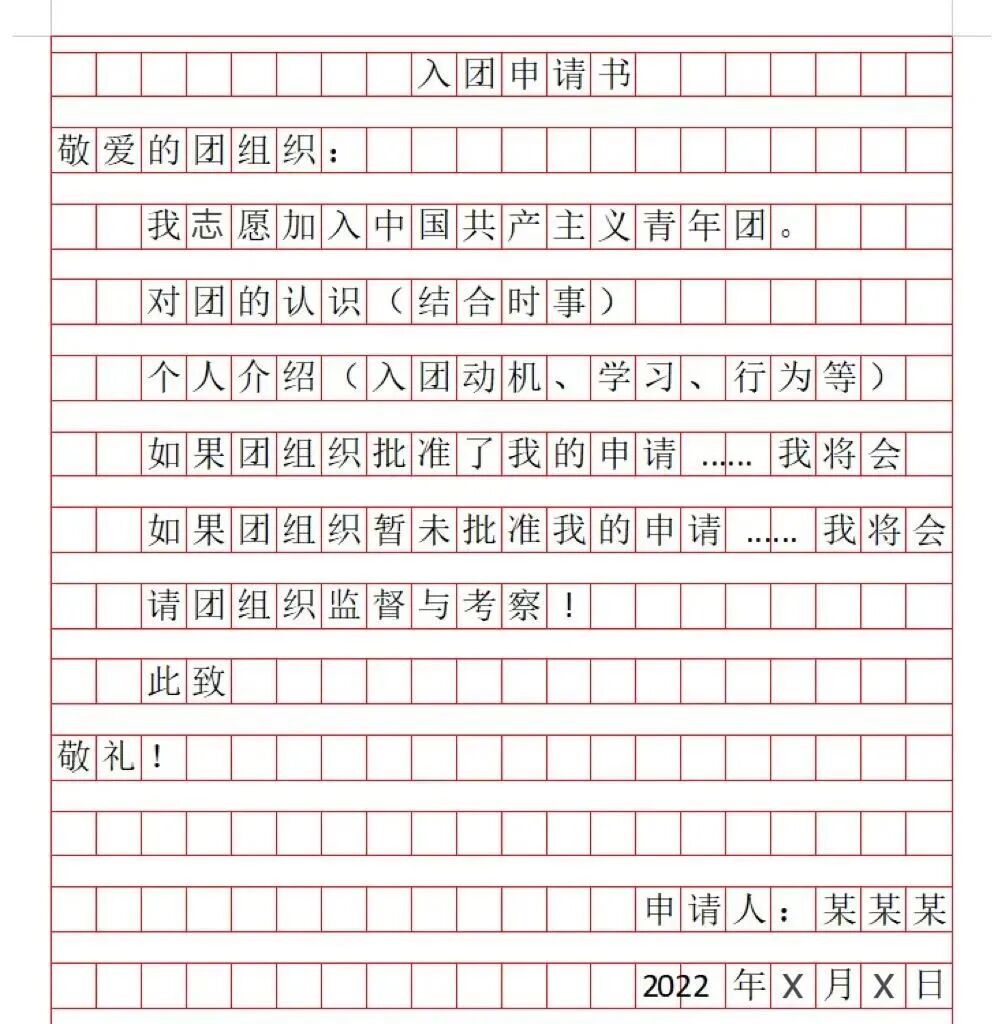 入团申请书
敬爱的团组织：
我志愿加入中国共产主义青年团。
对团的认识（结合时事）
个人介绍（入团动机、学习、行为等）
如果团组织批准了我的申请……我将会
如果团组织暂未批准我的申请……我将会
请团组织监督与考察！
此致
敬礼！
申请人：某某某
2022年X月X日